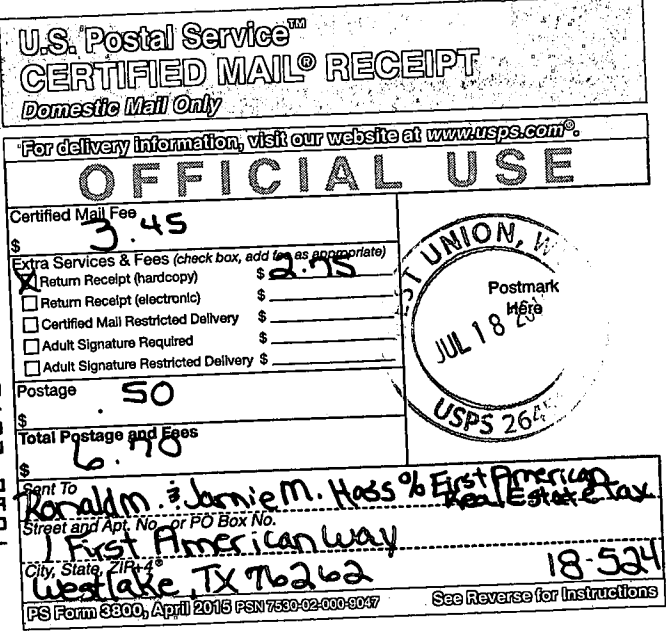 U.S. Postal Service™
CERTIFIED MAIL® RECEIPT
Domestic Mail Only
For delivery information, visit our website at www.usps.com®.
OFFICIAL USE
Certified Mail Fee
$ 3.45
Extra Services & Fees (check box, add fee as appropriate)
Return Receipt (hardcopy) $ 2.75
Return Receipt (electronic) $
Certified Mail Restricted Delivery $
Adult Signature Required $
Adult Signature Restricted Delivery $
Postage
$ .50
Total Postage and Fees
$ 6.70
UNION, W
Postmark
Here
JUL 18
USPS
Sent To
Ronald M. & Jamie M. Hoss % First American
Real Estate Tax
Street and Apt. No., or PO Box No.
1 First American Way
City, State, ZIP+4®
Westlake, TX 76262
18-524
PS Form 3800, April 2015 PSN 7530-02-000-9047
See Reverse for Instructions